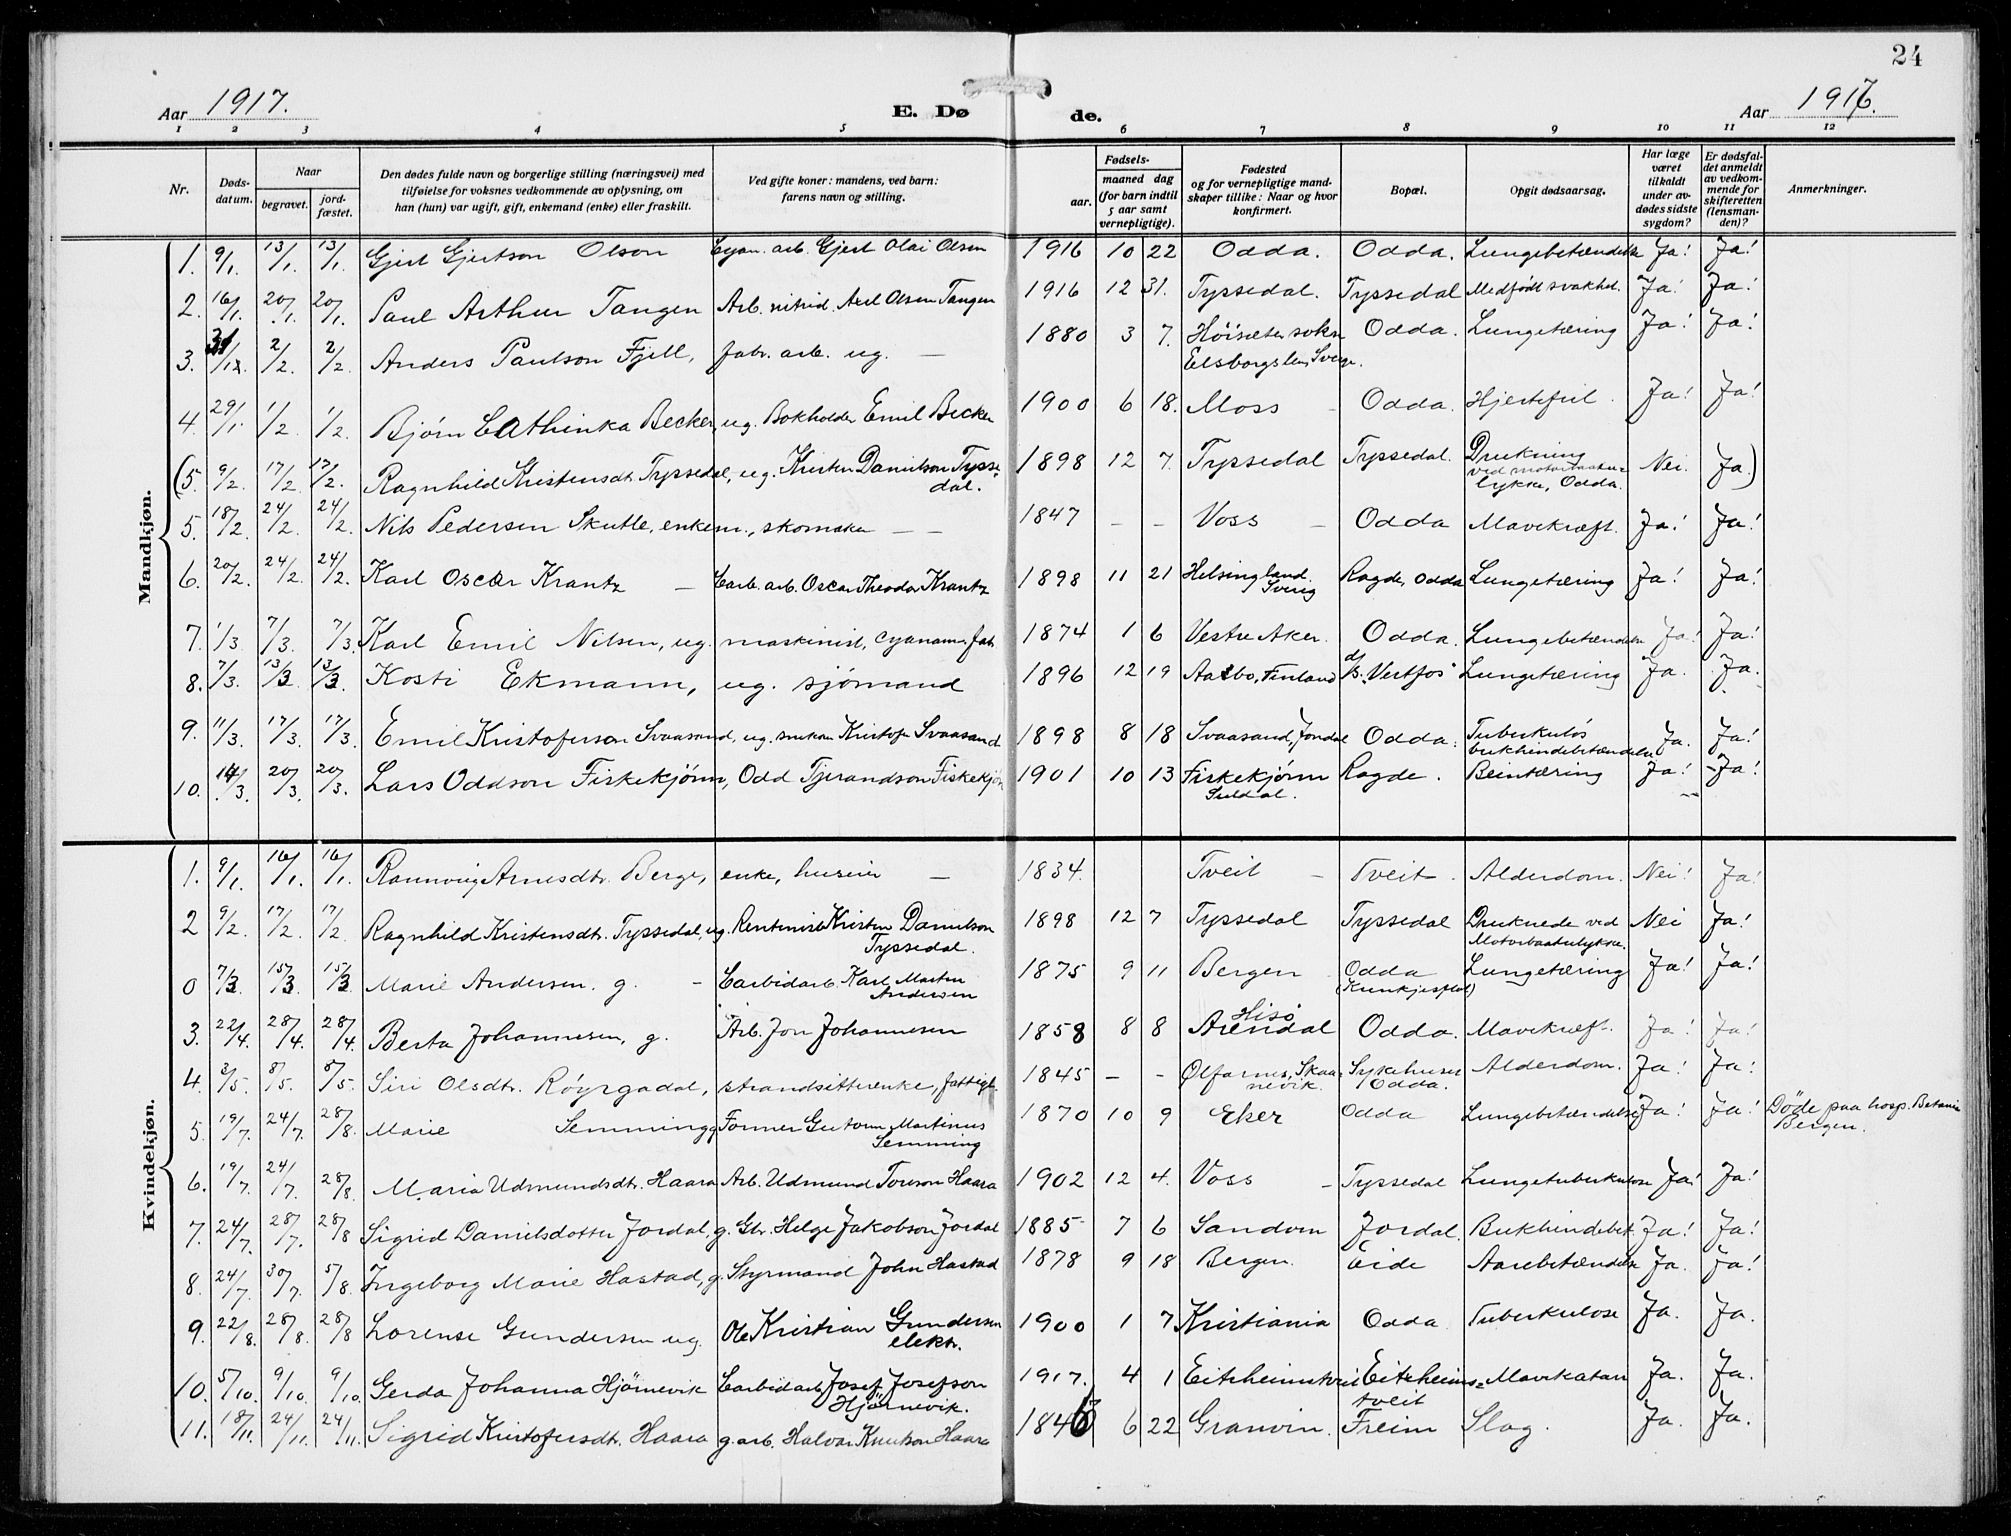 24
Aar 1917. E. Dø de. Aar 1917.
1 2 3 4 5 6 7 8 9 10 11 12
Nr. Døds-datum. Naar begravet. jord-fæstet. Den dødes fulde navn og borgerlige stilling (næringsvei) med tilføielse for voksnes vedkommende av oplysning, om han (hun) var ugift, gift, enkemand (enke) eller fraskilt. Ved gifte koner: mandens, ved barn: farens navn og stilling. Fødsels- aar. maaned dag (for barn indtil 5 aar samt vernepligtige). Fødested og for vernepligtige mandskaper tillike: Naar og hvor konfirmert. Bopæl. Opgit dødsaarsag. Har læge været tilkaldt under avdødes sidste sygdom? Er dødsfaldet anmeldt av vedkommende for skifteretten (lensmanden)? Anmerkninger.
Mandkjøn.
1. 9/1. 13/1. 13/1. Gjert Gjertson Olson Cyan. arb. Gjert Olai Olsen 1916 10 22 Odda. Odda. Lungebetændelse Ja! Ja!
2. 16/1. 20/1. 20/1. Paul Arthur Tangen Arb. nitrid. Axel Olsen Tangen 1916 12 31. Tyssedal. Tyssedal Medfødt svakhet. Ja! Ja!
3. 31/12. 2/2. 2/2. Anders Paulson Fjell, fabr. arb. ug. — 1880 3 7. Høisæter sokn Elsborgslen, Sverge. Odda. Lungetæring Ja! Ja!
4. 29/1. 1/2. 1/2. Bjørn Cathinka Becker, ug. Bokholder Emil Becker 1900 6 18. Moss Odda. Hjertefeil. Ja! Ja!
(5. 9/2. 17/2. 17/2. Ragnhild Kristensdt. Tyssedal, ug. Kristen Danielson Tyssedal. 1898 12 7. Tyssedal Tyssedal. Drukning ved motorbaatulykke, Odda. Nei. Ja.)
5. 18/2 24/2. 24/2. Nils Pedersen Skutle, enkem., skomaker — — 1847 — — Voss Odda Mavekræft. Ja! Ja!
6. 20/2. 24/2. 24/2. Karl Oscar Krantz — Carb. arb. Oscar Theodor Krantz 1898 11 21 Helsingland. Sverig Ragde, Odda Lungetæring Ja! Ja!
7. 1/3 7/3. 7/3. Karl Emil Nilsen, ug. maskinist, cyanam. fab. 1874 1 6 Vestre Aker. Odda. Lungebetændelse Ja! Ja!
8. 7/3. 13/3 13/3. Kosti Ekmann, ug. sjømand 1896 12 19 Aabo, Finland d/s. "Vestfos" Lungetæring Ja. Ja.
9. 11/3. 17/3. 17/3. Emil Kristoferson Svaasand, ug. snekker Kristofer Svaasand 1898 8 18 Svaasand, Jondal Odda. Tuberkuløs bukhindebetændelse Ja. Ja!
10. 14/3. 20/3. 20/3. Lars Oddson Fiskekjønn, Odd Tjerandson Fiskekjøn 1901 10 13 Fiskekjønn Suldal. Ragde. Beintæring Ja! Ja!
Kvindekjøn.
1. 9/1. 16/1. 16/1. Rannveig Arnesdtr. Berge, enke, huseier — 1834. Tveit — Tveit. Alderdom. Nei! Ja!
2 9/2. 17/2. 17/2. Ragnhild Kristensdtr. Tyssedal, ug. Rentenist Kristen Danielson Tyssedal. 1898 12 7 Tyssedal Tyssedal Druknede ved Motorbaatulykke. Nei Ja!
0 7/3. 15/3. 15/3 Marie Andersen. g. — Carbidarb. Karl Martin Andersen 1875 9 11 Bergen Odda Lungetæring Ja! Ja!
3. 22/4. 28/4. 28/4. Berta Johannesen, g. Arb. Jon Johannesen 1858 8 8 Hisø Arendal Odda. Mavekræft. Ja! Ja!
4. 3/5. 8/5. 8/5. Siri Olsdtr. Røyrgadal, strandsitterenke, fattigl. 1845 — — Ølfarnes, Skaanevik. Sykehuset Odda. Alderdom. Ja! Ja!
5. 19/7. 24/7. 28/8. Marie Semming g Former Gustav Martinus Semming 1870 10 9 Eker Odda Lungebetændelse Ja! Ja! Døde paa hosp. Betania Bergen.
6. 19/7. 24/7. 28/8. Maria Udmundsdt. Haara Arb. Udmund Toreson Haara 1902 12 4. Voss — Tyssedal Lungetuberkulose Ja! Ja!
7. 24/7. 28/7. 28/8 Sigrid Danielsdotter Jordal, g. Gbr. Helge Jakobson Jordal 1885 7 6 Sandven Jordal. Bukhindebet. Ja! Ja!
8. 24/7. 30/7. 5/8. Ingeborg Marie Hastad, g. Styrmand John Hastad 1878 9 18 Bergen. Eide Aarebetændelse Ja. Ja!
9. 22/8. 28/8. 28/8 Lorense Gundersen ug. Ole Kristian Gundersen elektr. 1900 1 7 Kristiania Odda Tuberkulose Ja. Ja.
10. 5/10. 9/10. 9/10. Gerda Johanna Hjørnevik Carbidarb. Josef Josefson Hjørnevik. 1917. 4 1 Eitrheimstveit Eitrheimstveit Mavekatarr Ja. Ja.
11. 18/11. 24/11. 24/11. Sigrid Kristofersdt. Haara g. arb. Halvar Knutson Haara 1846 6 22 Granvin. Freim Slag. Ja. Ja.